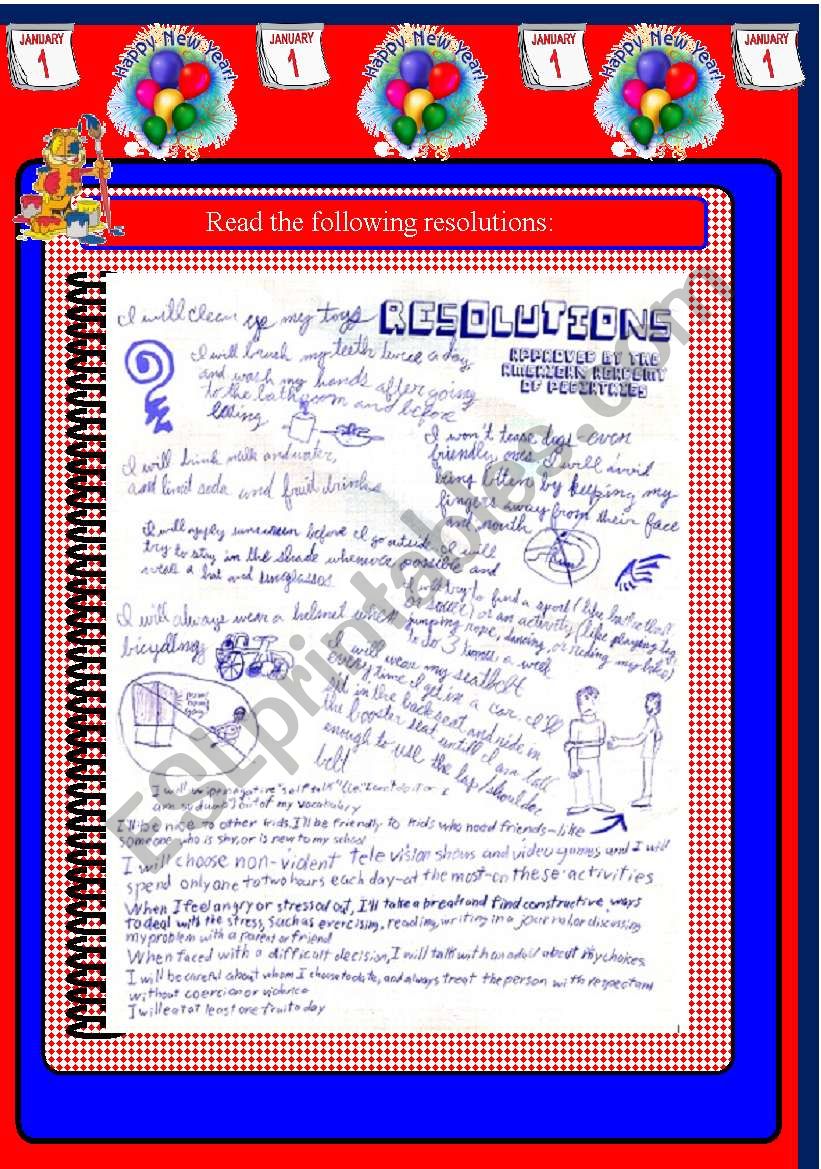 JANUARY
1
Happy New Year!
JANUARY
1
Happy New Year!
JANUARY
1
Happy New Year!
JANUARY
1
Read the following resolutions:
I will clean my toys
RESOLUTIONS
APPROVED BY THE
AMERICAN ACADEMY
OF
I will brush my teeth twice a day,
and wash my hands after going
to the bathroom and before
I will drink milk and water,
and soda and fruit drinks
I won't tease dogs - even
friendly ones. I will avoid
being bitten by keeping my
fingers away from their face
and mouth
I will apply sunscreen before I go outside. I will
try to stay in the shade whenever possible and
wear a hat and sunglasses
I will try to find a sport (like
or soccer) or an activity (like playing tag,
jumping rope, dancing, or riding my bike)
to do 3 times a week
I will always wear a helmet when
bicycling
I will wear my seatbelt
every time I get in a car. I'll
sit in the back seat and ride in
the booster seat until I am tall
enough to use the lap/shoulder
belt
I will negative "self talk"
out of my vocabulary
I'll be nice to other kids. I'll be friendly to kids who need friends-like
someone who is shy, or is new to my school
I will choose non-violent television shows and video games, and I will
spend only one to two hours each day-at the most-on these activities
When I feel angry or stressed out, I'll take a break and find constructive ways
to deal with the stress, such as exercising, reading, writing in a journal or discussing
my problem with a parent or friend
When faced with a difficult decision, I will talk with an adult about my choices
I will be careful about whom I choose to date, and always treat the person with respect and
without coercion or violence
I will eat at least one fruit a day
ESLprintables.com